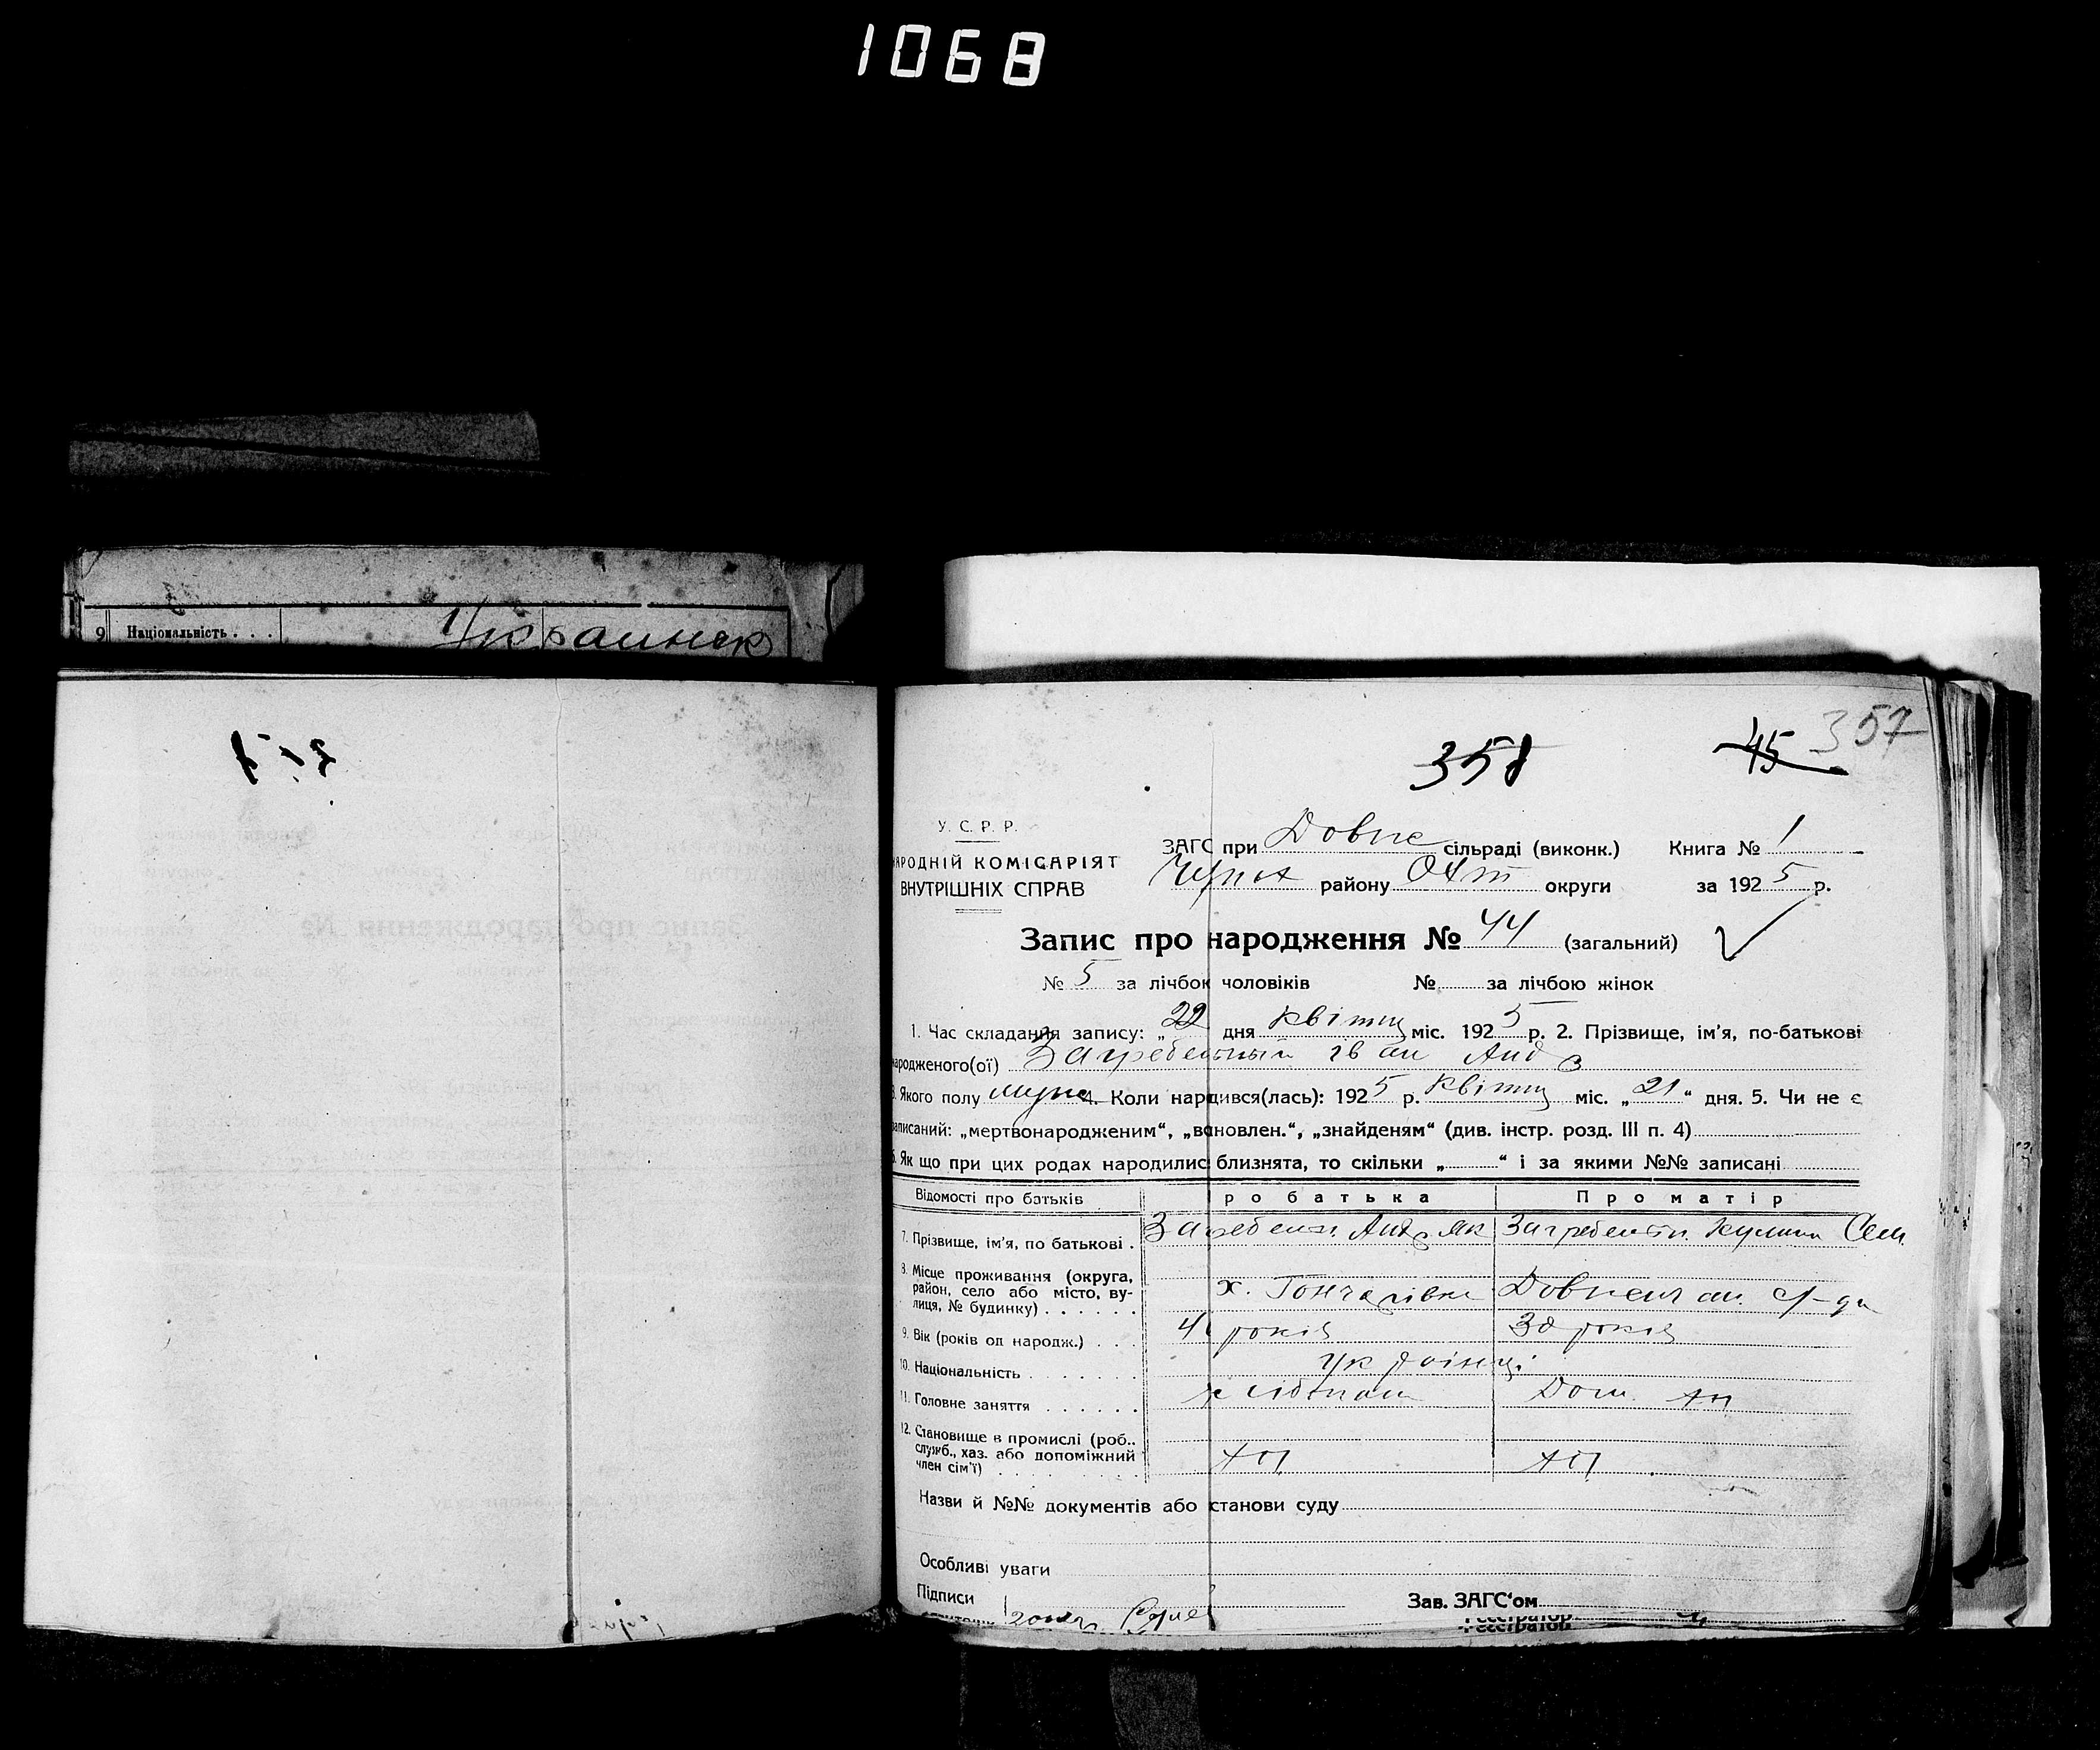 1068
9 Національність . . .
Украинск
357
358
45
У. С. Р. Р.
НАРОДНІЙ КОМІСАРІЯТ
ВНУТРІШНІХ СПРАВ
ЗАГС при Довже сільраді (виконк.) Книга № 1
Чупах району Охт округи за 1925 р.
Запис про народження № 44 (загальний)
№ 5 за лічбою чоловіків № за лічбою жінок
1. Час складання запису: „22 дня квітну міс. 1925 р. 2. Прізвище, ім'я, по-батькові
народженого(ої) Загребельний Іван Анд
3. Якого полу муже 4. Коли народився(лась): 1925 р. квітну міс. „21“ дня. 5. Чи не є
записаний: „мертвонародженим“, „вановлен.“, „знайденям“ (див. інстр. розд. III п. 4)
6. Як що при цих родах народилис близнята, то скільки „ “ і за якими №№ записані
Відомості про батьків Про батька Про матір
7. Прізвище, ім'я, по батькові . Загребельн. Анд. Як Загребельн. Сем.
8. Місце проживання (округа, район, село або місто, вулиця, № будинку) . . . . . . х. Гончарівка
9. Вік (років од народж.) . . . років 38 років
10. Національність . . . . . . . Українці
11. Головне заняття . . . . . . хлібопаш Дом.
12. Становище в промислі (роб.,
служб., хаз. або допоміжний
член сім'ї) . . . . . . . . .
Назви й №№ документів або станови суду
Особливі уваги
Підписи
Зав. ЗАГС'ом
Реєстратор